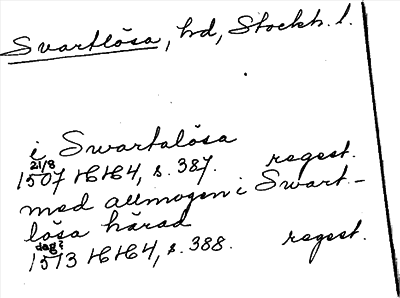 Svartlösa, hd, Stockh. l.
i Swartalösa
21/8
1507 HH4, s. 387. regest.
med allmogen i Swart-
lösa härad
dag?
1513 HH4, s. 388. regest.